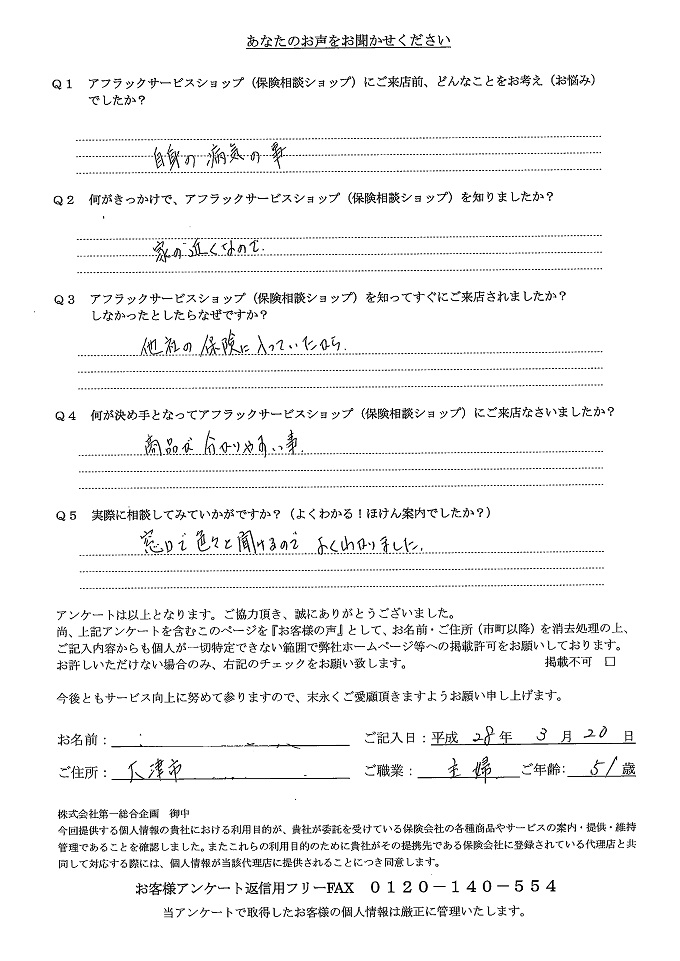 あなたのお声をお聞かせください
Q1 アフラックサービスショップ(保険相談ショップ)にご来店前、どんなことをお考え(お悩み)
でしたか?
自身の病気の事
Q2 何がきっかけで、アフラックサービスショップ(保険相談ショップ)を知りましたか?
家の近くなので.
Q3 アフラックサービスショップ(保険相談ショップ)を知ってすぐにご来店されましたか?
しなかったとしたらなぜですか?
他社の保険に入っていたから.
Q4 何が決め手となってアフラックサービスショップ(保険相談ショップ)にご来店なさいましたか?
商品が分かりやすい事.
Q5 実際に相談してみていかがですか?(よくわかる!ほけん案内でしたか?)
窓口で色々と聞けるので よくわかりました.
アンケートは以上となります。ご協力頂き、誠にありがとうございました。
尚、上記アンケートを含むこのページを『お客様の声』として、お名前・ご住所(市町以降)を消去処理の上、
ご記入内容からも個人が一切特定できない範囲で弊社ホームページ等への掲載許可をお願いしております。
お許しいただけない場合のみ、右記のチェックをお願い致します。 掲載不可 □
今後ともサービス向上に努めて参りますので、末永くご愛顧頂きますようお願い申し上げます。
お名前: ご記入日:平成 28 年 3 月 20 日
ご住所: 津市 ご職業: 主婦 ご年齢: 51 歳
株式会社第一総合企画 御中
今回提供する個人情報の貴社における利用目的が、貴社が委託を受けている保険会社の各種商品やサービスの案内・提供・維持
管理であることを確認しました。またこれらの利用目的のために貴社がその提携先である保険会社に登録されている代理店と共
同して対応する際には、個人情報が当該代理店に提供されることにつき同意します。
お客様アンケート返信用フリーFAX 0120-140-554
当アンケートで取得したお客様の個人情報は厳正に管理いたします。